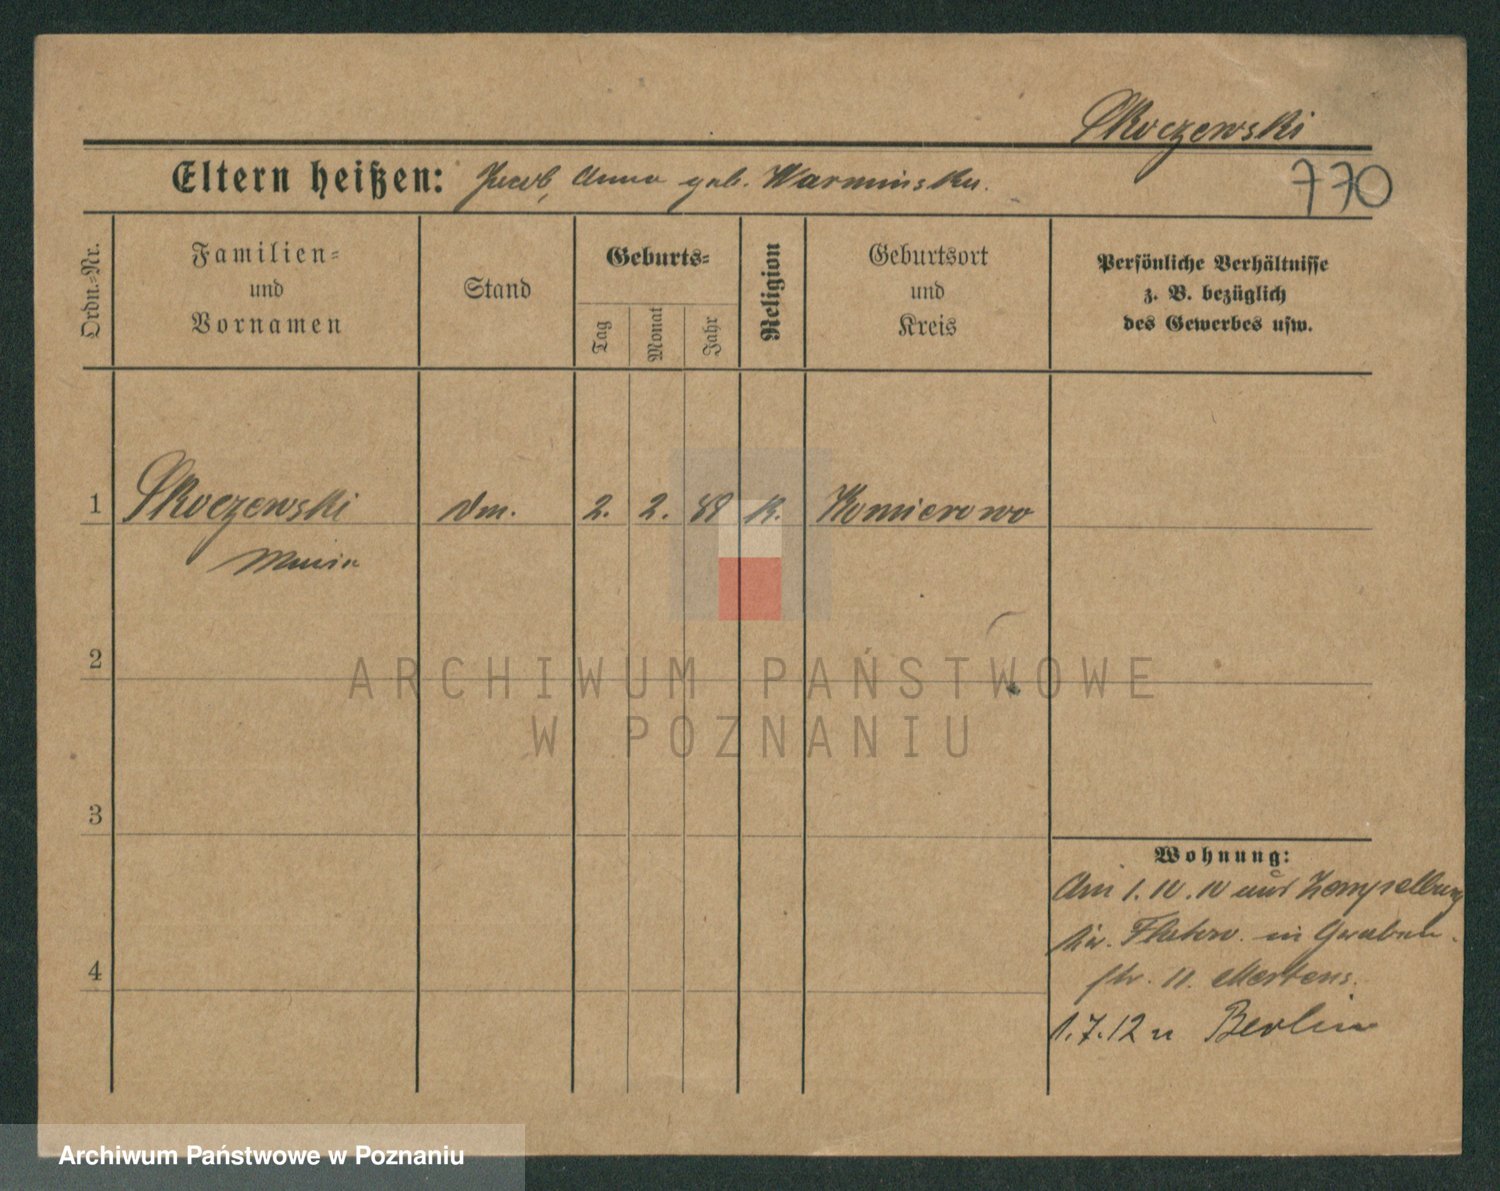 Skoczewski
Eltern heißen: Jacob, Anna geb. Warminska.
770
Ordn.-Nr.
Familien-
und
Vornamen
Stand
Geburts-
Tag
Monat
Jahr
Religion
Geburtsort
und
Kreis
Persönliche Verhältnisse
z. B. bezüglich
des Gewerbes usw.
1 Skoczewski 2. 2. 88 K. Komierowo
Maria
2
3
4
Wohnung:
Am 1.10.10 aus Zempelburg
Kr. Flatow. in Graben-
str. 11. Mertens.
1.7.12 n Berlin
ARCHIWUM PAŃSTWOWE
W POZNANIU
Archiwum Państwowe w Poznaniu